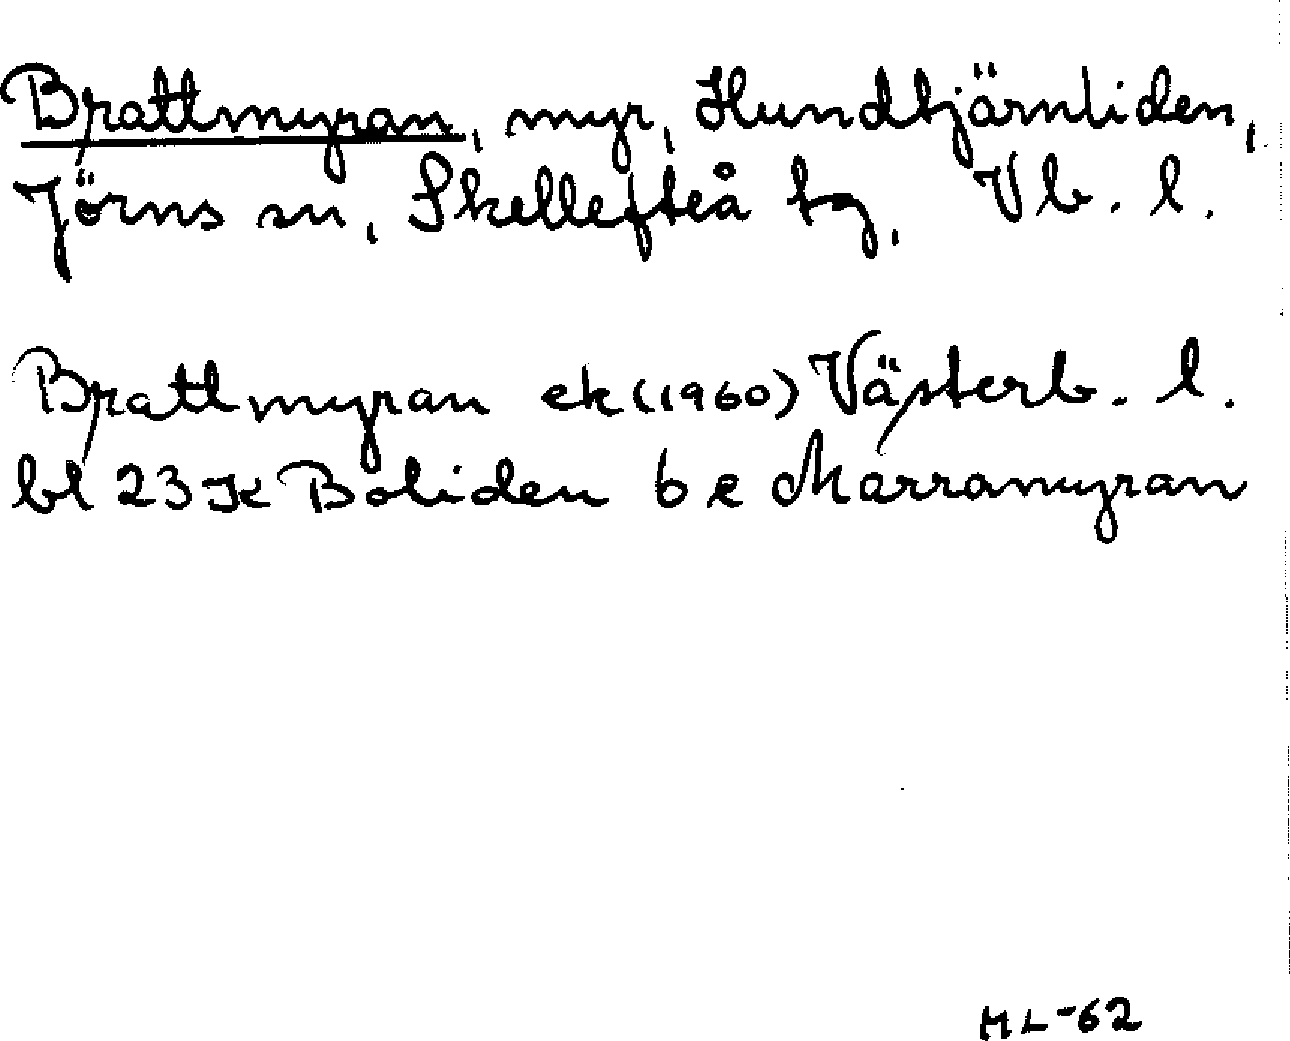 Brattmyran, myr, Hundtjärnliden,
Jörns sn, Skellefteå tg, Vb. l.
Brattmyran ek (1960) Västerb. l.
bl 23 K Boliden 6 e Marramyran
ML-62